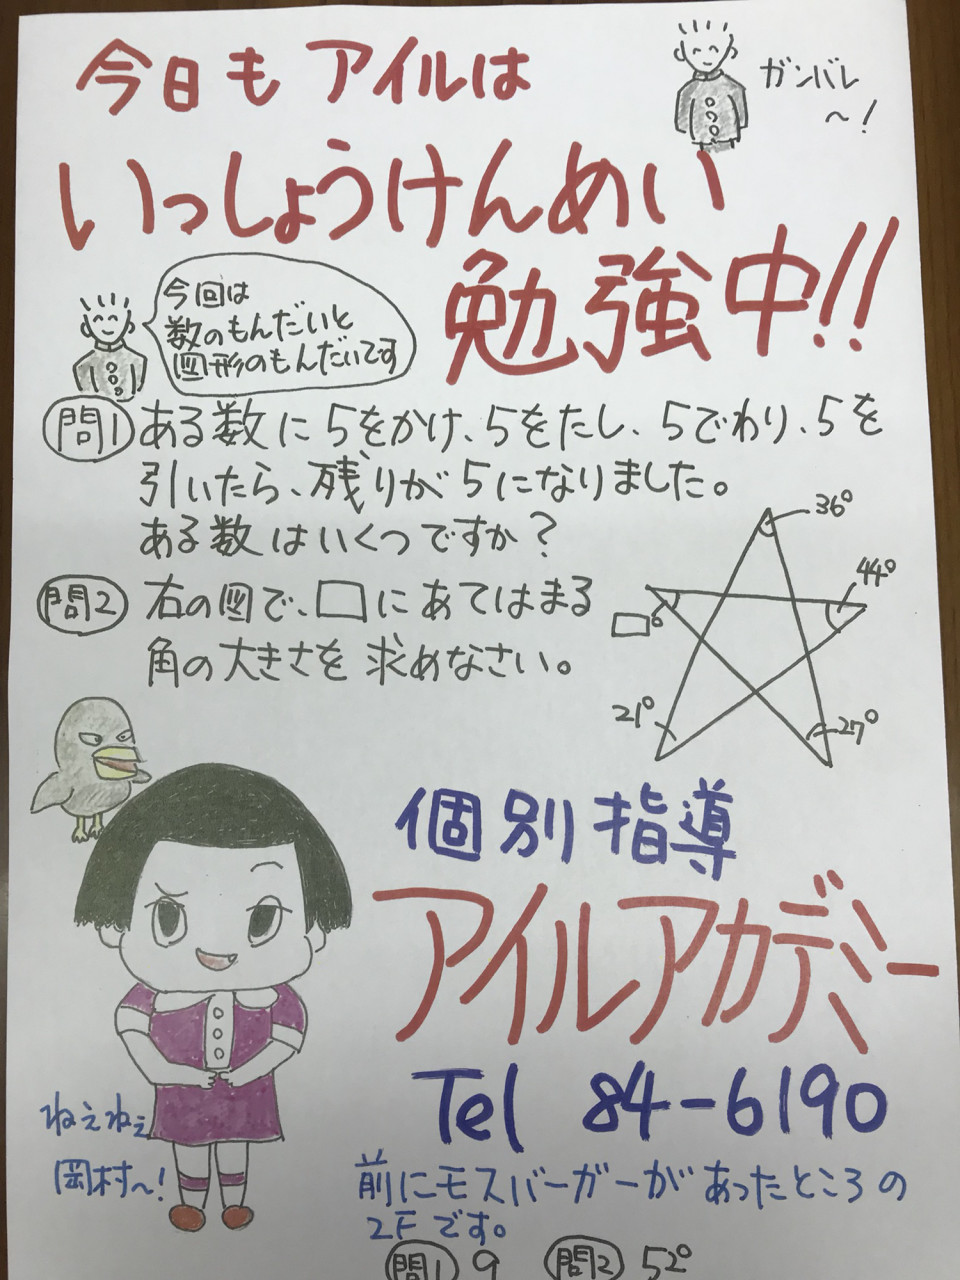 今日も アイルは
ガンバレ
～!
いっしょうけんめい
勉強中!!
今回は
数のもんだいと
図形のもんだいです
問1 ある数に5をかけ、5をたし、5でわり、5を
引いたら、残りが5になりました。
ある数はいくつですか?
問2 右の図で、□にあてはまる
角の大きさを求めなさい。
36°
44°
□°
21°
27°
個別指導
アイルアカデミー
Tel 84-6190
ねぇねぇ
岡村～!
前にモスバーガーがあったところの
2Fです。
問1 9 問2 52°